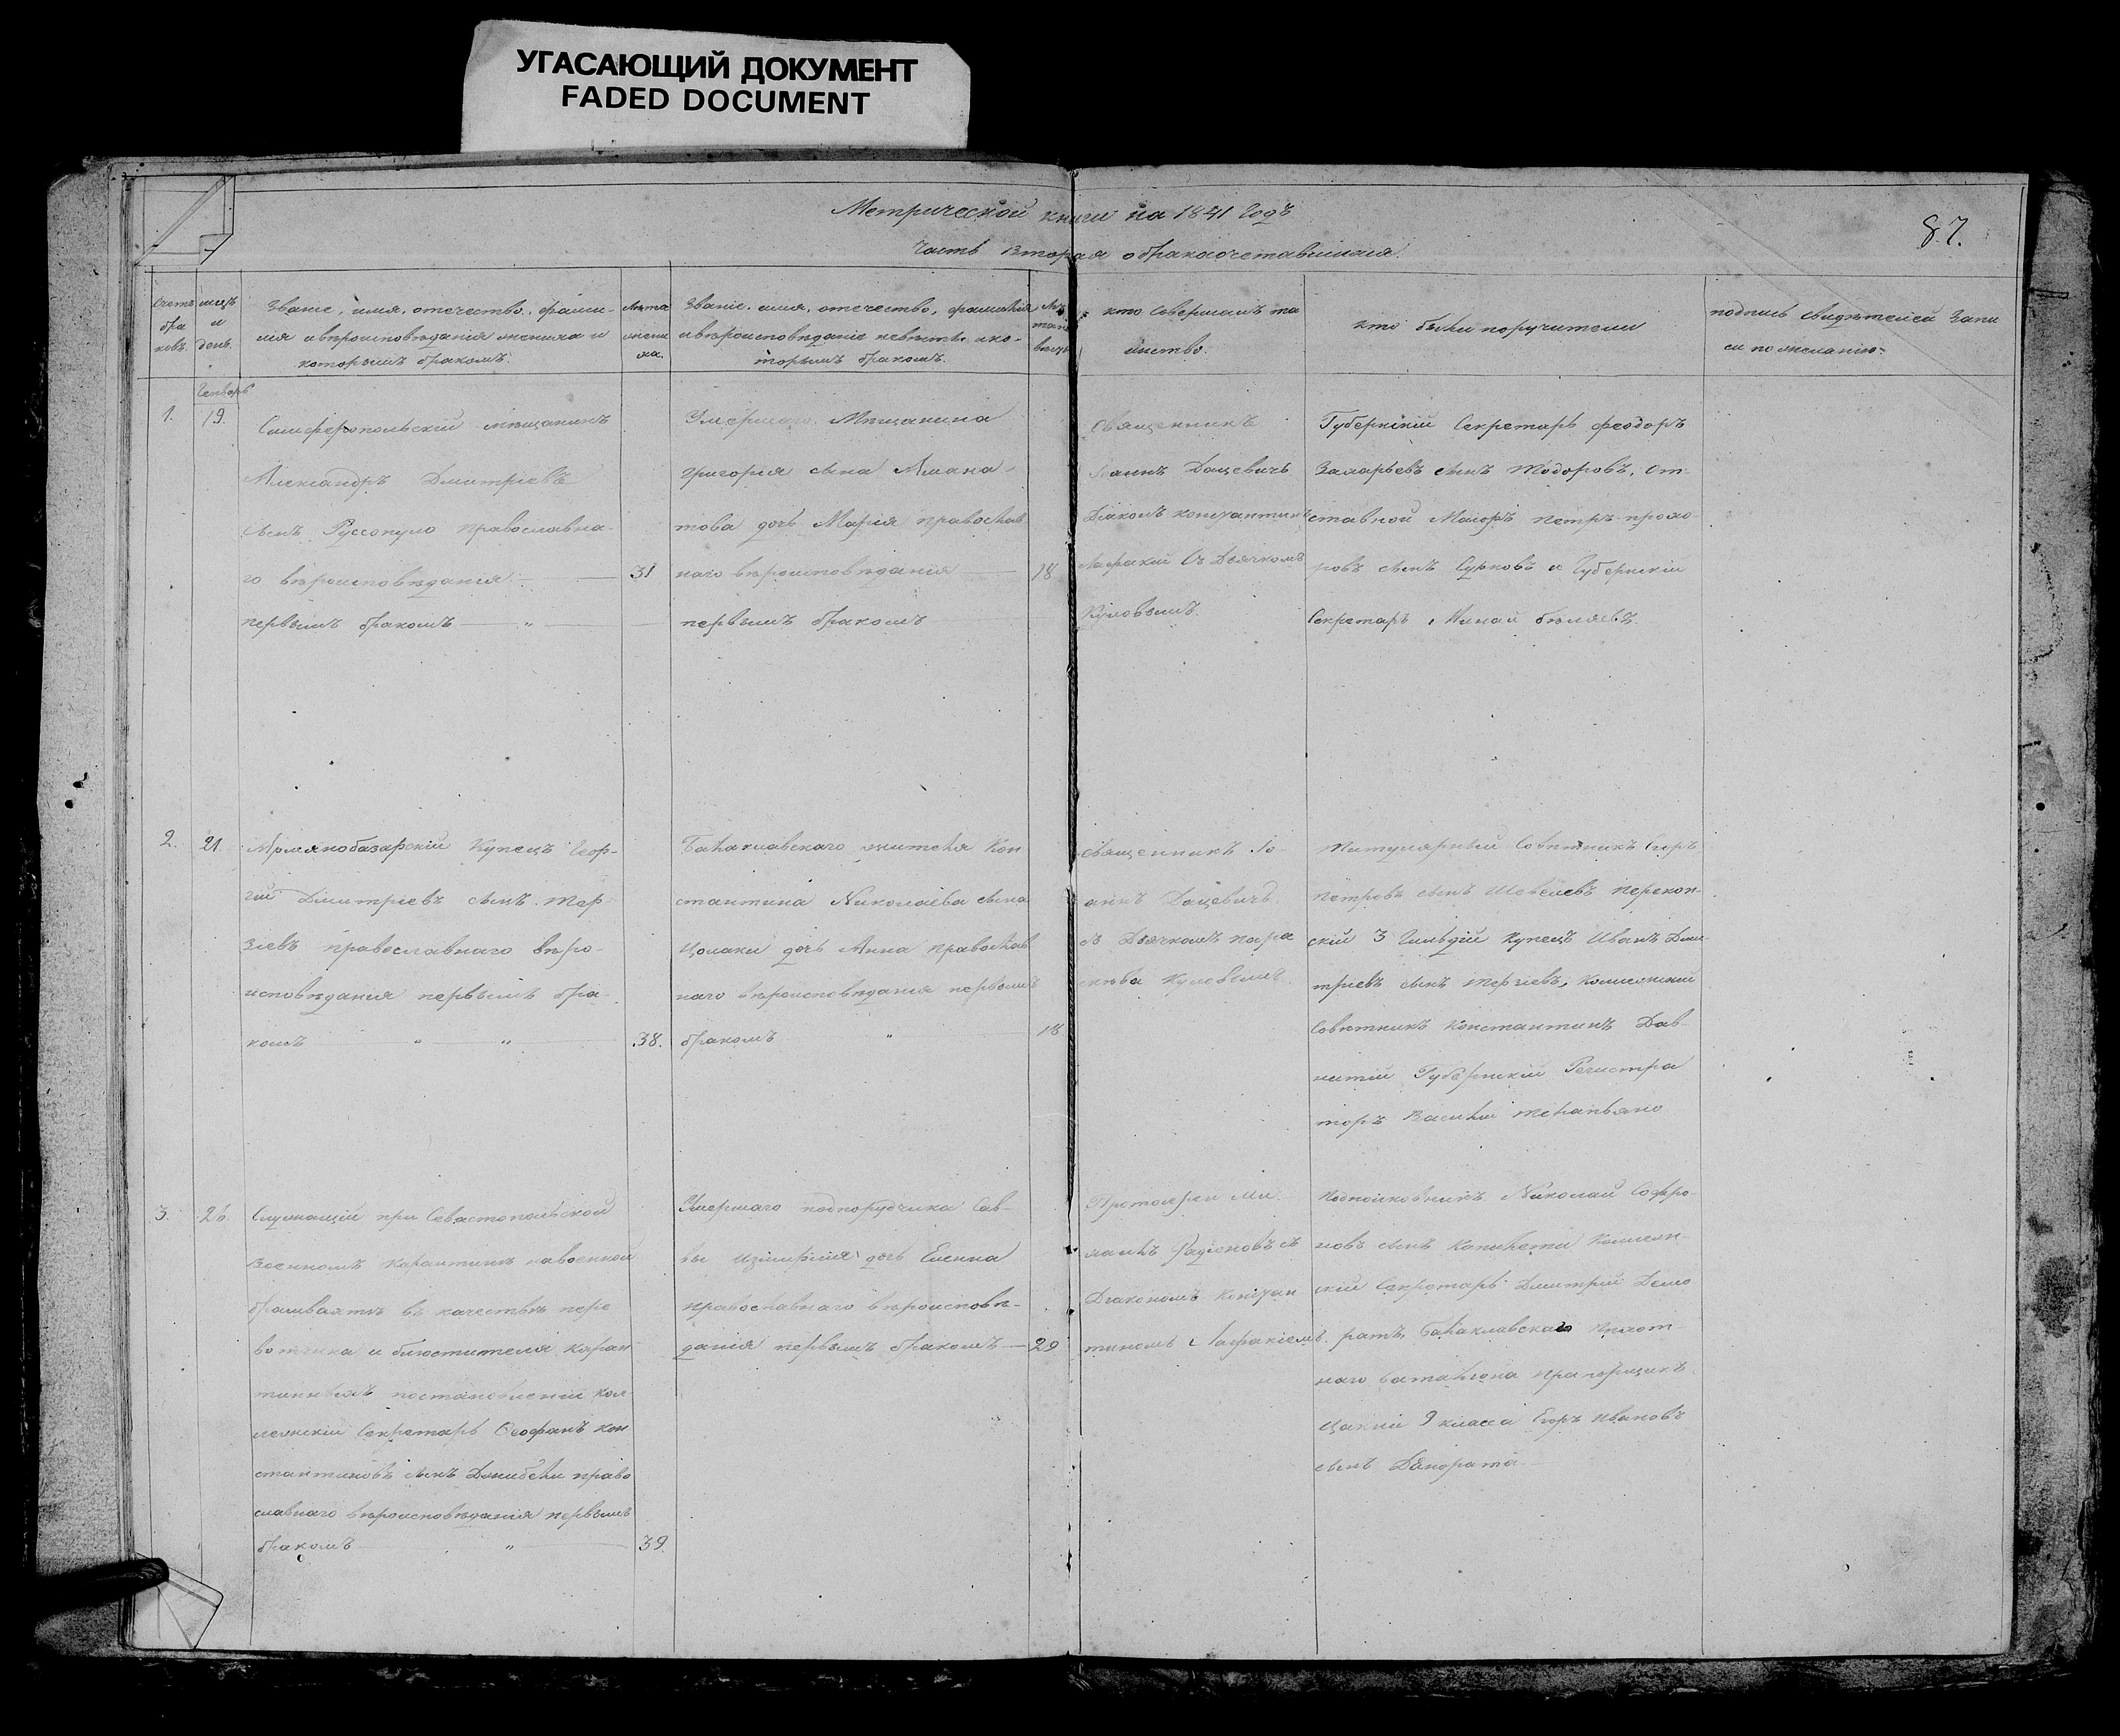 УГАСАЮЩИЙ ДОКУМЕНТ
FADED DOCUMENT
Метрической книги на 1841 годъ
Часть Вторая о бракосочетавшихся.
87.
Счетъ бра ковъ.
мсць и день.
Званіе, имя, отечество, фами-
лія и вѣроисповѣданія жениха и
которымъ бракомъ.
Лѣта жени ха.
Званіе, имя, отечество, фамилія
и вѣроисповѣданіе невѣсты и ко-
торымъ бракомъ.
кто совершалъ та
инство.
кто были поручители
подпись свидѣтелей запи
си по желанію.
Генварь
1.
19.
Симферопольскій мѣщанинъ
Александръ Дмитріевъ
сынъ Руссопуло православна-
го вѣроисповѣданія
31
первымъ бракомъ
Умершаго Мѣщанина
Григорія сына
това дочь Марія православ
наго вѣроисповѣданія
18
первымъ бракомъ
Священникъ
Іоаннъ Дацевичъ
Діаконъ Константинъ
Лафакій Съ Дьячкомъ
Куловымъ.
Губернскій Секретарь Феодоръ
Захарьевъ сынъ Тодоровъ, От-
ставной Маіоръ Петръ Прохо
ровъ сынъ Сурковъ и Губернскій
Секретарь Минай Бѣляевъ.
2.
21.
Армянобазарскій Купецъ Геор-
гій Дмитріевъ сынъ Тер-
зіевъ православнаго вѣро-
исповѣданія первымъ бра-
комъ
38.
Балаклавскаго жителя Кон
стантина Николаева сына
Цолаки дочь Анна православ
наго вѣроисповѣданія первымъ
бракомъ
18
Священникъ Іо-
аннъ Дацевичъ
съ Дьячкомъ Пара
Куловымъ.
Титулярный Совѣтникъ Егоръ
Петровъ сынъ Шевелевъ Перекоп-
скій 3 Гильдіи Купецъ Иванъ Дми-
тріевъ сынъ Терзіевъ, Коллежскій
Совѣтникъ Константинъ Дав-
Губернскій Регистра
торъ Василій
3.
26.
Служащій при Севастопольской
Военномъ Карантинѣ на военной
брантвахтѣ въ качествѣ пере
вотчика и блюстителя Каран
тинныхъ постановленій Кол
лежскій Секретарь Ѳеофанъ Кон
стантиновъ сынъ право
славнаго вѣроисповѣданія первымъ
бракомъ
39.
Умершаго подпорутчика Сав-
вы дочь Елена
православнаго вѣроисповѣ-
данія первымъ бракомъ
29
Протоіерей Ми-
хаилъ Родіоновъ съ
Діакономъ Констан
тиномъ Лафакіемъ.
Подполковникъ Николай Софро-
новъ сынъ Коллеж-
скій Секретарь Дмитрій
Балаклавскаго Пѣхот-
наго баталіона Прапорщикъ
9 класса Егоръ Ивановъ
сынъ